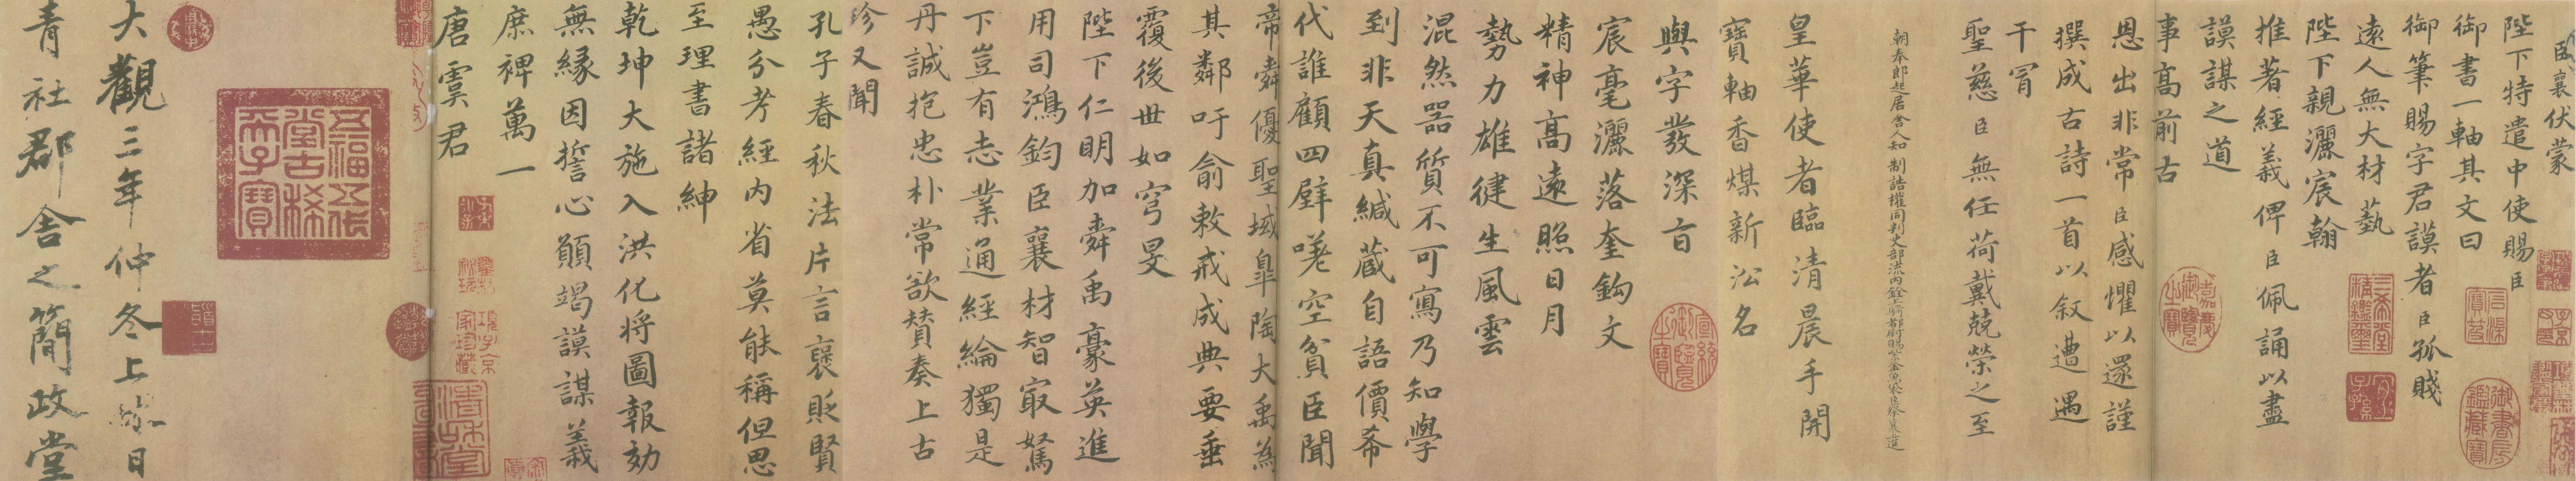 臣襄伏蒙
陛下特遣中使賜臣
御書一軸其文曰
御筆賜字君謨者臣孤賤
遠人無大材藝
陛下親灑宸翰
推著經義俾臣佩誦以盡
謨謀之道
事高前古
恩出非常臣感懼以還謹
撰成古詩一首以叙遭遇
干冒
聖慈臣無任荷戴兢榮之至
朝奉郎起居舍人知制誥權同判吏部流內銓上騎都尉賜紫金魚袋臣蔡襄進
皇華使者臨清晨手開
寶軸香煤新沿名
與字發深旨
宸毫灑落奎鈎文
精神高遠照日月
勢力雄健生風雲
混然器質不可寫乃知學
到非天真緘藏自語價希
代誰顧四壁嘆空貧臣聞
帝舜優聖域皐陶大禹為
其鄰吁俞敕戒成典要垂
覆後世如穹旻
陛下仁明加舜禹豪英進
用司鴻鈞臣襄材智冣駑
下豈有志業通經綸獨是
丹誠抱忠朴常欲贊奏上古
珍又聞
孔子春秋法片言褒貶賢
愚分考經內省莫能稱但思
至理書諸紳
乾坤大施入洪化将圖報効
無緣因誓心願竭謨謀義
庶裨萬一
唐虞君
五福五代
堂古稀
天子寶
大觀三年仲冬上缘日
青社郡舍之簡政堂